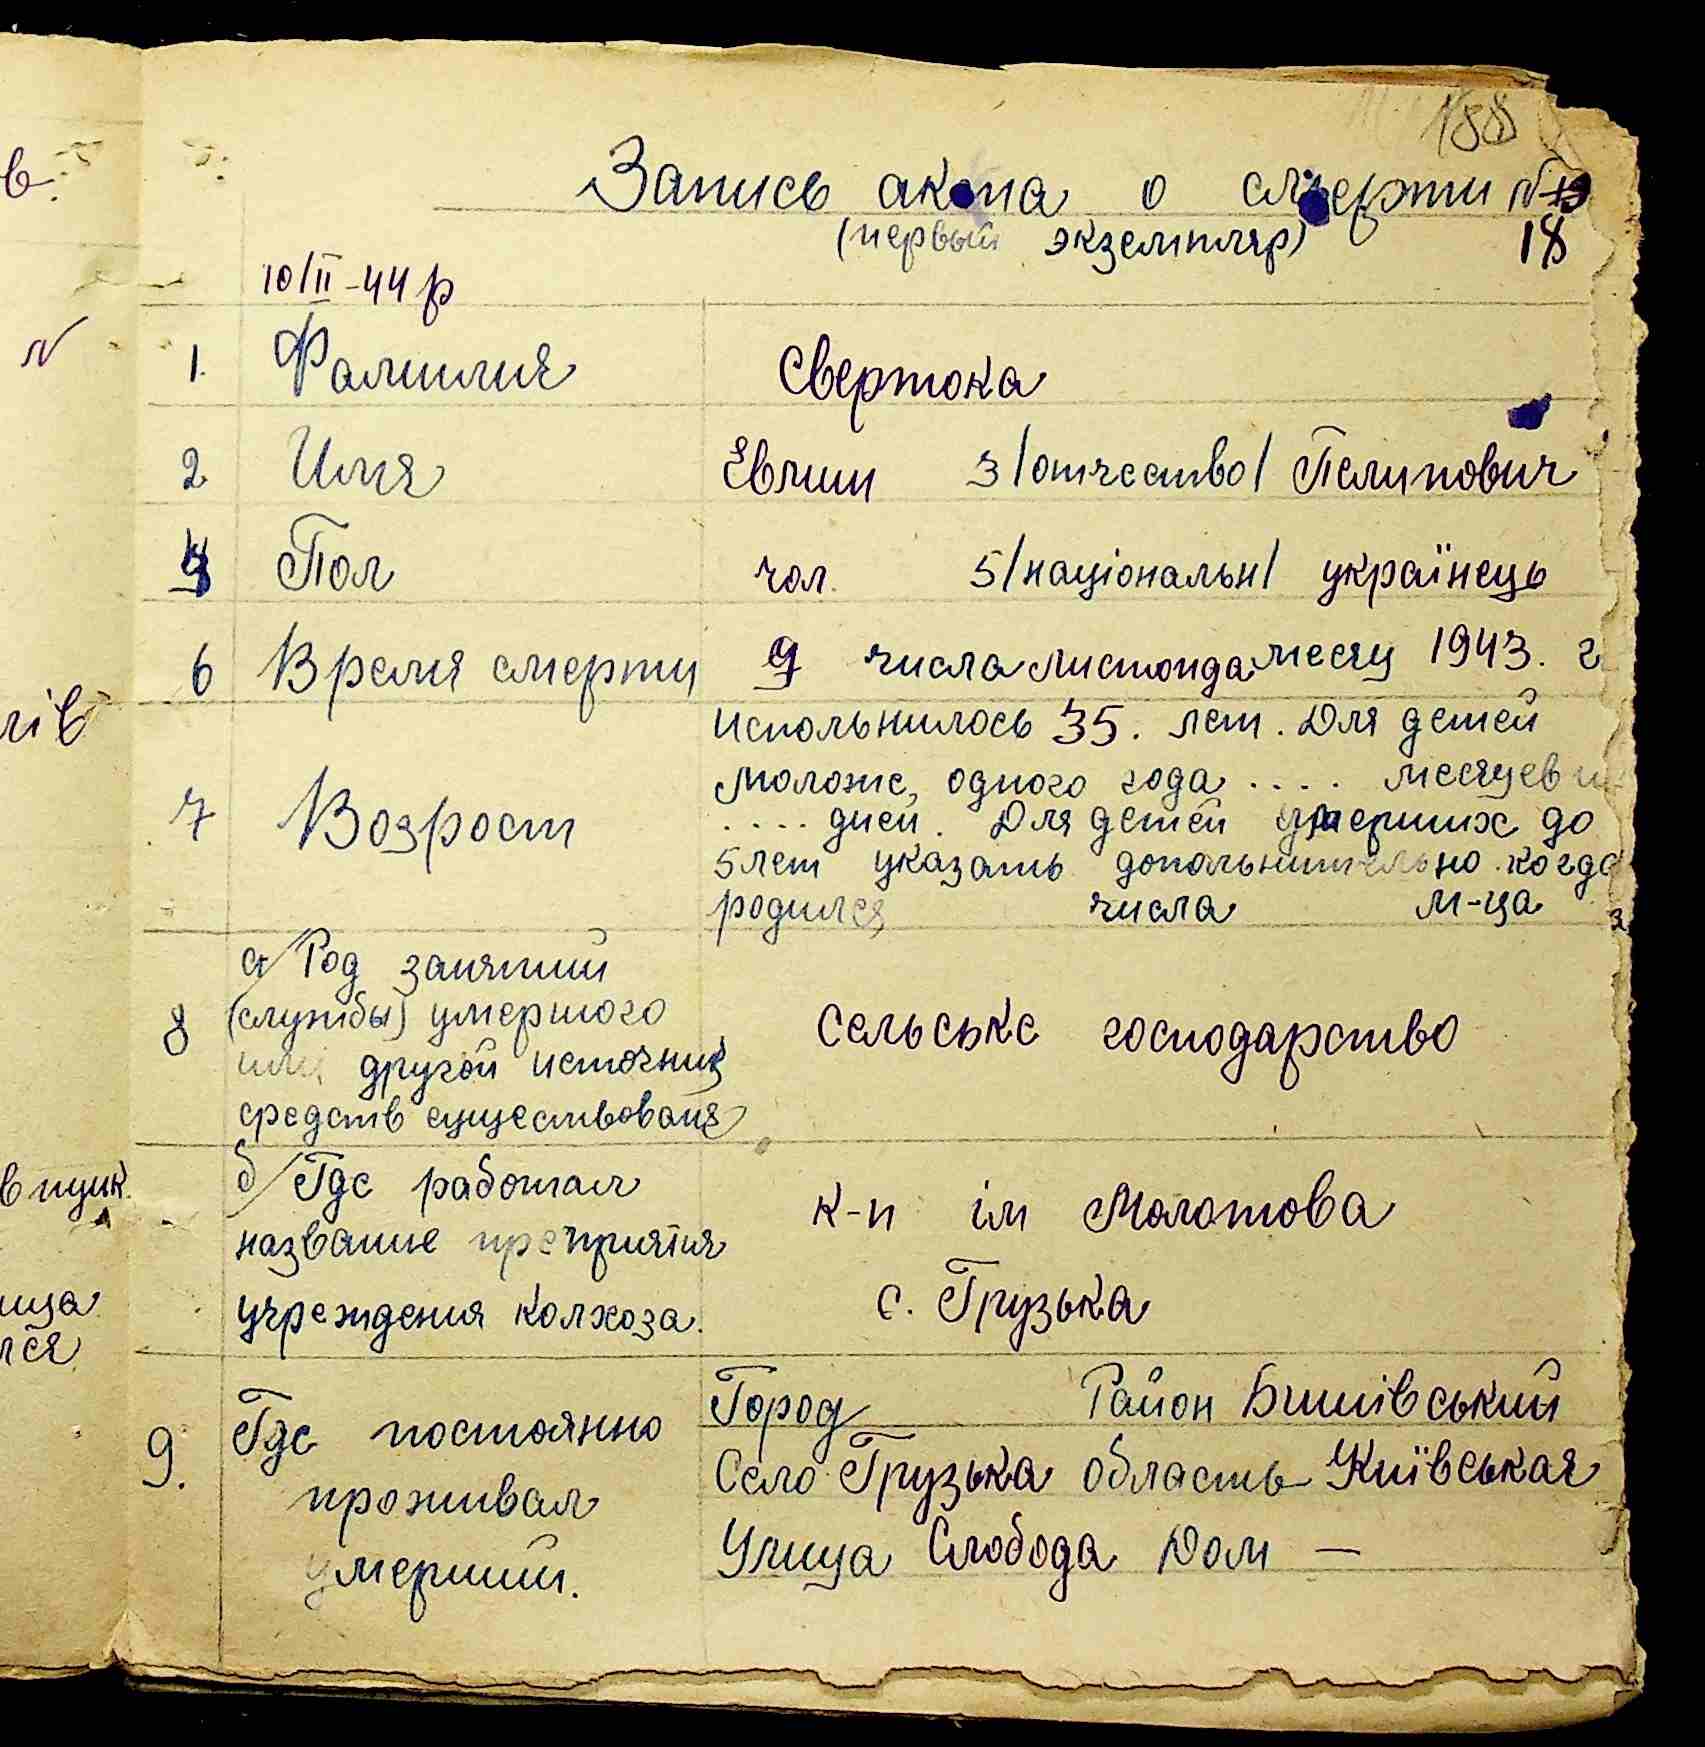 188
в.
Запись акта о смерти №
(первый экземпляр) 18
10/II-44 р
1. Фамилия Свертока
2 Имя Евмин 3/отчество/ Пелипович
4 Пол чол. 5/національн/ українець
6 Время смерти 9 числа листопада месяц 1943. г
лів
7 Возрост
испольнилось 35. лет. Для детей
моложе, одного года .... месяцев
.... дней. Для детей умерших до
5 лет указать допольнительно когда
родился числа м-ца
8 а/ Род занятий
(службы) умершого
или другой источник
средств существованя
сельське господарство
б/ Где работал
название преприятия
учреждения колхоза.
к-п ім Молотова
с. Грузька
9. Где постоянно
проживал
умерший.
Город Район Бишівський
Село Грузька область Київськая
Улица Слобода Дом —